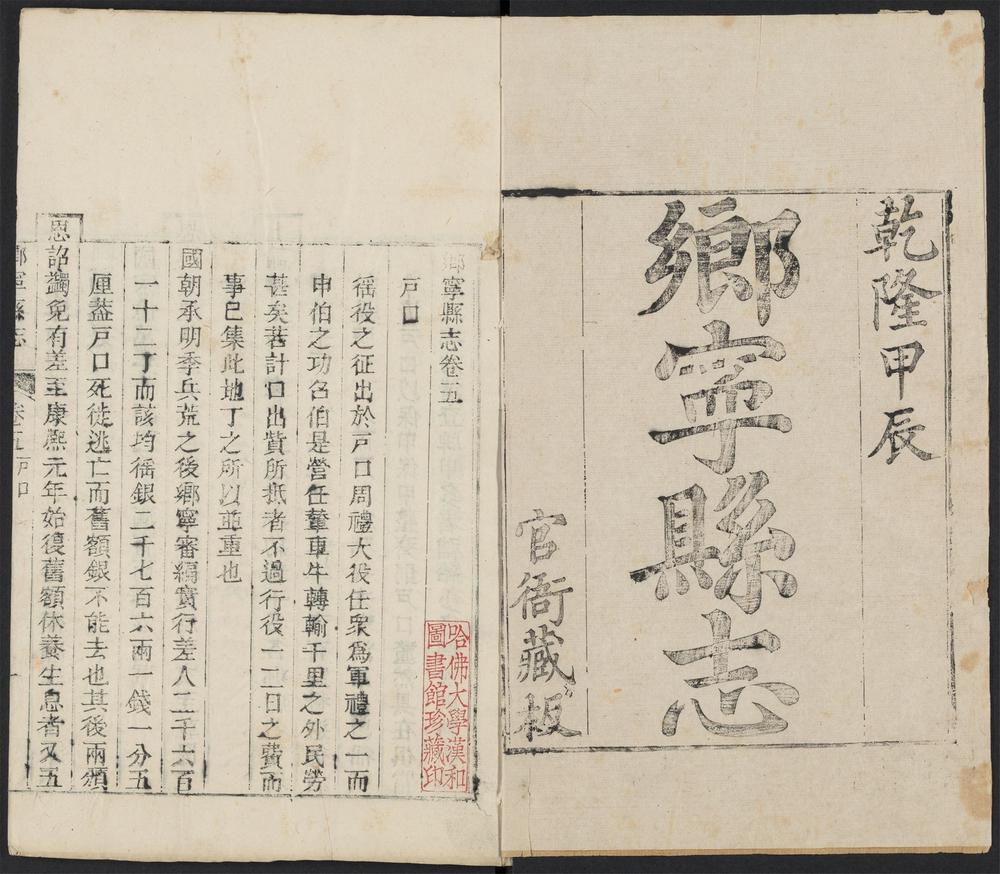 乾隆甲辰
鄉寧縣志
官衙藏板
寧縣志卷五
戶口
徭役之征出於戶口周禮大役任衆爲軍禮之一而
申伯之功召伯是營任輦車牛轉輸千里之外民勞
甚矣若計口出貲所抵者不過行役一二日之費而
事已集此地丁之所以並重也
國朝承明季兵荒之後鄉寧審編實行差人二千六百
一十二丁而該均徭銀二千七百六兩一錢一分五
厘葢戶口死徙逃亡而舊額銀不能去也其後兩頒
恩詔蠲免有差至康熙元年始復舊額休養生息者又五
鄉寧縣志 卷五 戶口 一
哈佛大學漢和
圖書館珍藏印